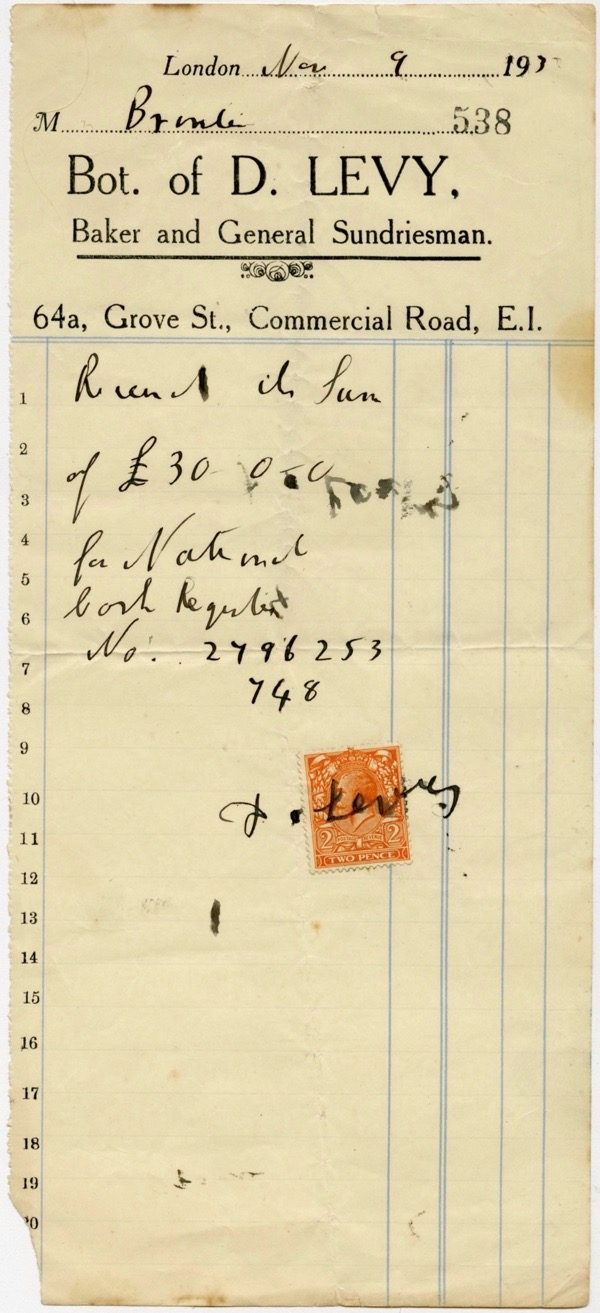 London Nov 9 193
M 538
Bot. of D. LEVY,
Baker and General Sundriesman.
64a, Grove St., Commercial Road, E.I.
1 Received the Sum
2 of £30-0-0
3
4 for National
5
6 Cash Register
7 No. 2796253
8 748
9
10 D. Levy
11
2 2
POSTAGE REVENUE
TWO PENCE
12
13
14
15
16
17
18
19
20